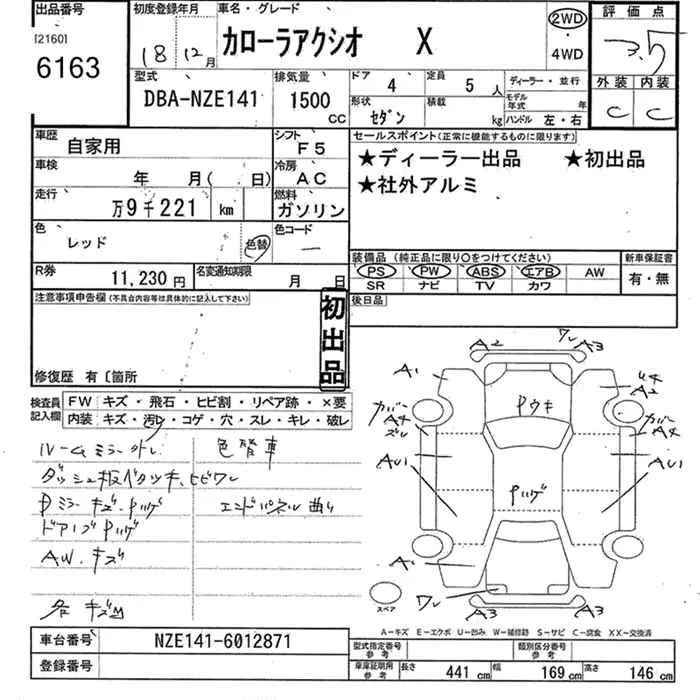 出品番号 初度登録年月 車名・グレード 評価点
[2160]
6163
18年 12月
カローラアクシオ X
2WD
・
4WD
3.5
型式 排気量 ドア 4 定員 5人 ディーラー・並行 外装 内装
DBA-NZE141 1500 CC
形状 セダン 積載 kg モデル年式 年
ハンドル 左・右
C C
車歴 自家用 シフト F5
車検 年 月( 日) 冷房 AC
走行 万9千221 km 燃料 ガソリン
色 レッド 色替 色コード ―
R券 11,230円 名変通知期限 月 日
セールスポイント(正常に機能するものに限ります)
★ディーラー出品 ★初出品
★社外アルミ
装備品 (純正品に限り○をつけてください) 新車保証書
PS PW ABS エアB AW 有・無
SR ナビ TV カワ
後日品
注意事項申告欄(不具合内容等は具体的に記入して下さい)
初出品
修復歴 有〔箇所
検査員記入欄
FW キズ・飛石・ヒビ割・リペア跡・×要
内装 キズ・汚レ・コゲ・穴・スレ・キレ・破レ
ルームミラー外レ 色替車
ダッシュ板ベタツキ、ヒビワレ
Pミラーキズ・Pハゲ エンドパネル曲り
ドアノブPハゲ
AW・キズ
各キズ凹
A2 ワレ A3
A1 A2
Pウキ
カバー A4 ズレ カバー A4
AU1 AU1
Pハゲ
A1
ワレ A3 A3
スペア
A―キズ E―エクボ U―凹み W―補修跡 S―サビ C―腐食 XX―交換済
車台番号 NZE141-6012871
登録番号
型式指定番号 参考 類別区分番号 参考
車庫証明用 参考 長さ 441 cm 幅 169 cm 高さ 146 cm